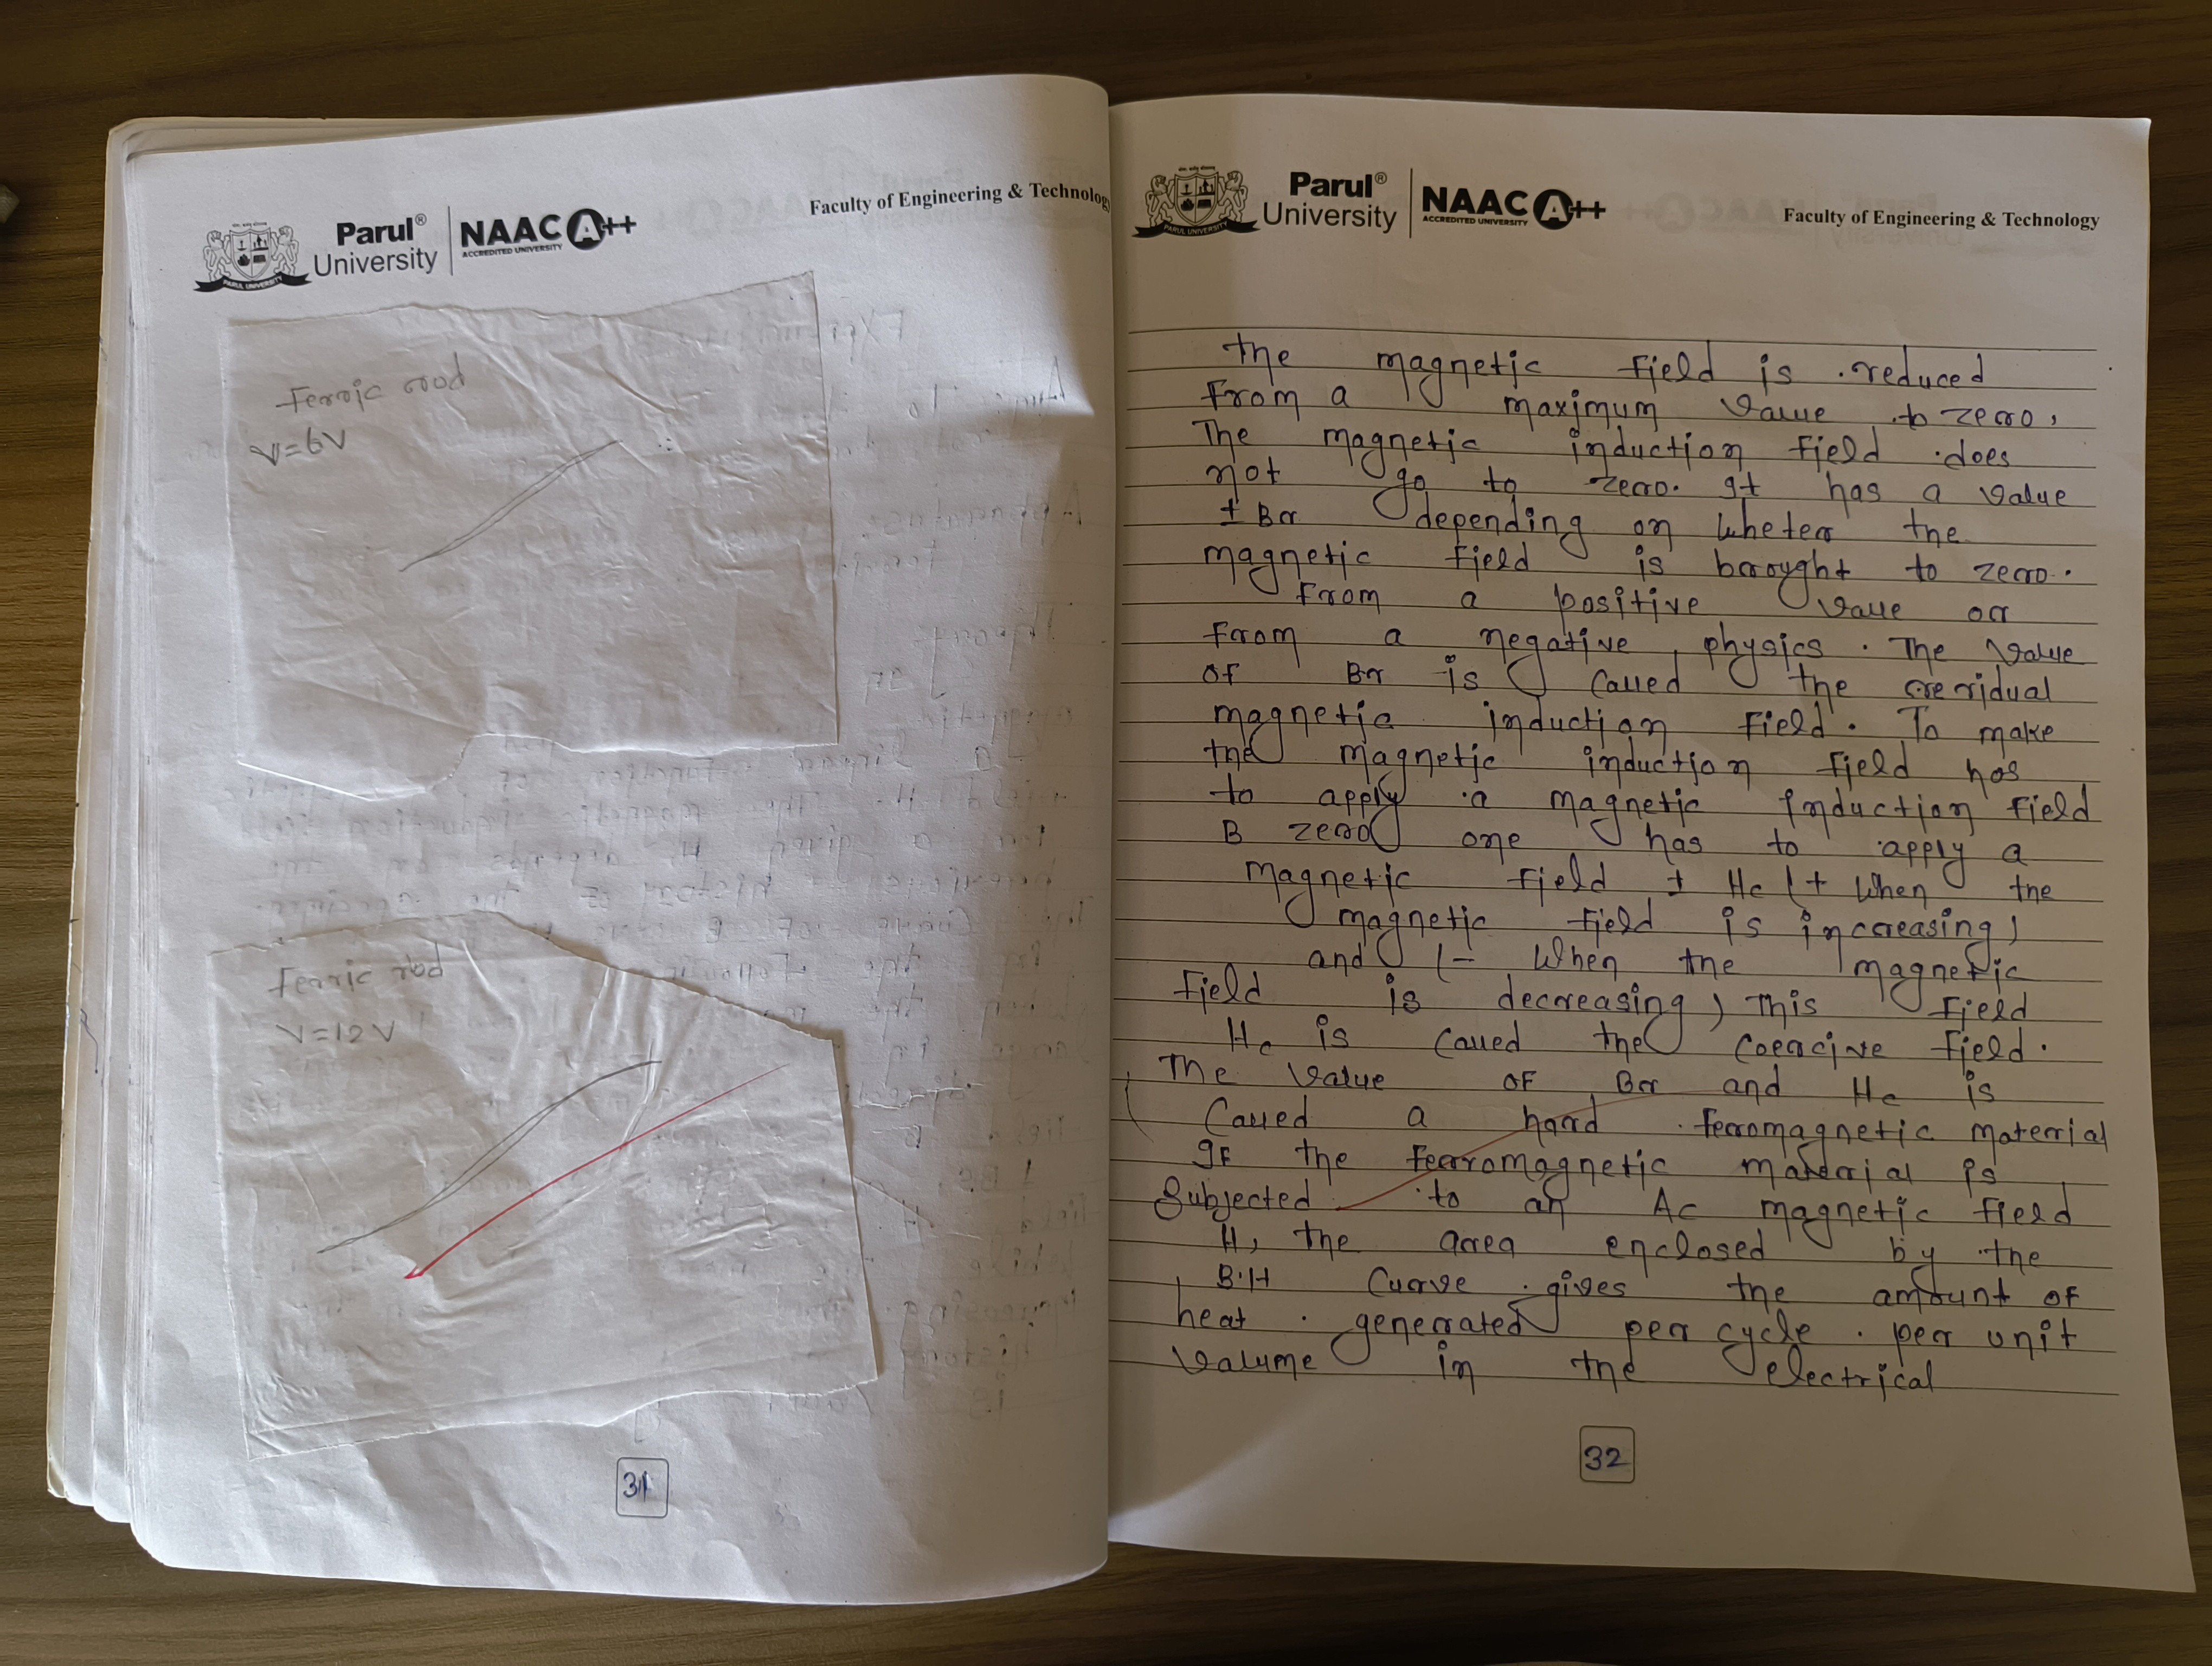 Parul®
University
NAAC A++
ACCREDITED UNIVERSITY
PARUL UNIVERSITY
Faculty of Engineering & Technology
Ferric rod
V=6V
Ferric rod
V=12V
31
Parul®
University
NAAC A++
ACCREDITED UNIVERSITY
PARUL UNIVERSITY
Faculty of Engineering & Technology
the magnetic field is reduced
From a maximum value to zero,
The magnetic induction field does
not go to zero. It has a value
± Br depending on wheter the
magnetic field is brought to zero.
From a positive value or
from a negative physics. The value
of Br is called the reridual
magnetic induction field. To make
the magnetic induction field has
to apply a magnetic induction field
B zero one has to apply a
magnetic field ± Hc (+ when the
magnetic field is increasing)
and (- when the magnetic
field is decreasing) This field
Hc is called the coercive field.
The value of Br and Hc is
called a hard ferromagnetic material
If the ferromagnetic material is
Subjected to an Ac magnetic field
H, the area enclosed by the
B.H curve gives the amount of
heat generated per cycle per unit
valume in the electrical
32